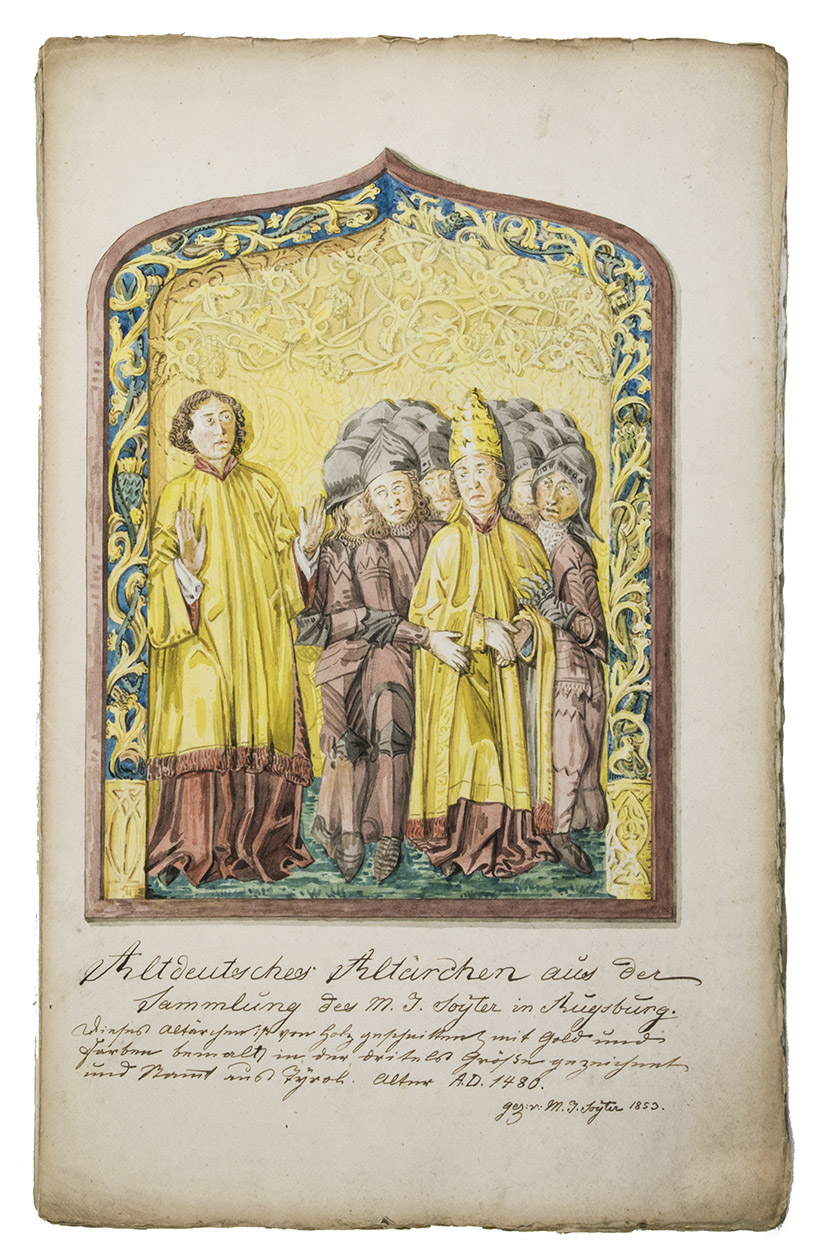 Altdeutsches Altärchen aus der
Sammlung des M. J. Soÿter in Augsburg.
Dieses Altärchen ist von Holz geschnitten, mit Gold und
Farben bemalt, in der dritels Größe gezeichnet
und Stamt aus Tÿrol. Alter A.D. 1480.
gez: v: M. J. Soÿter 1853.